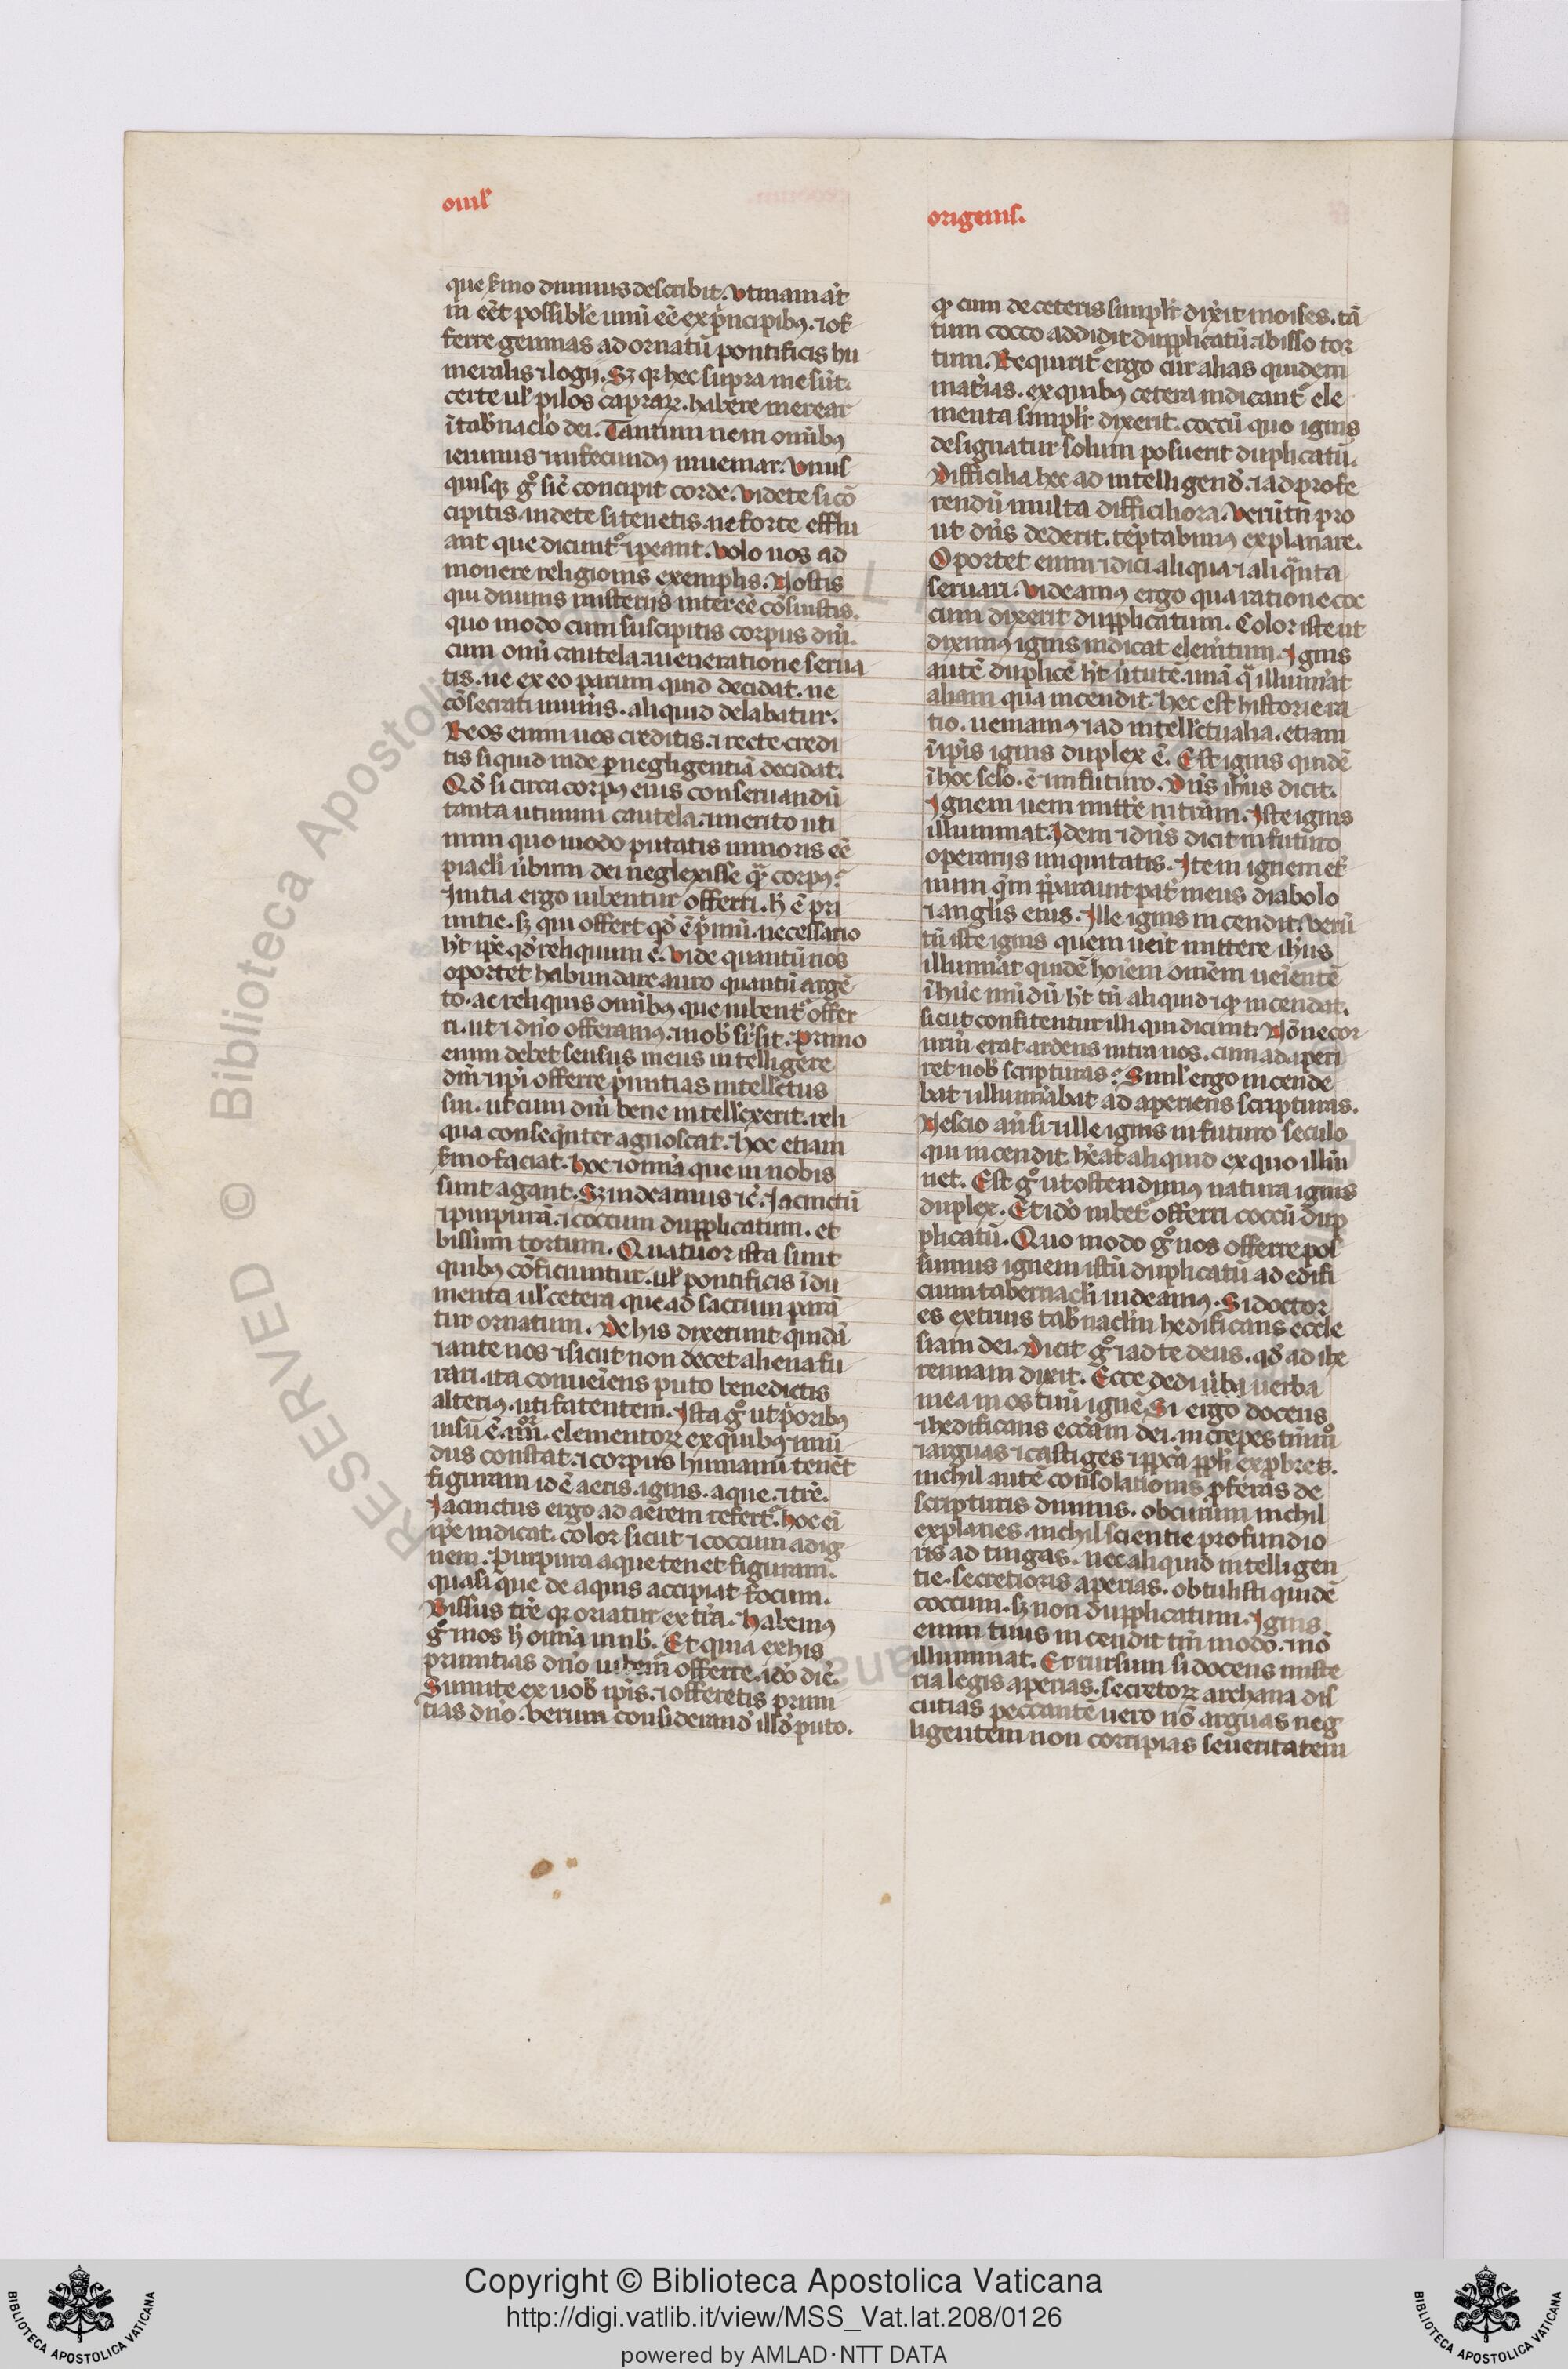 omł
origenis.
que ẜmo diuinus describit. Vtinam at̉
m̄ eēt possibl'e unū eē ex p̉ncipibȝ. ⁊ of
ferre gemmas ad ornatū pontificis hu
meralis ⁊ logij. Sȝ qꝛ hec supra me sūt.
certe ul' pilos capraꝝ. habere merear
ī tab'nacl'o dei. Tantum ne in om̄ibȝ
ieiunus ⁊ infecundȝ inueniar. Vnus
quisqȝ g° sic̄ concipit corde. Videte si cō
cipitis. uidete si tenetis. ne forte efflu
ant que dicunt' ⁊ pereant. Volo uos ad
monere religionis exemplis. Nostis
qui diuinis misterijs interee cōsuistis.
quo modo cum suscipitis corpus dn̄i.
cum om̄i cautela ⁊ ueneratione serua
tis. ne ex eo parum quid decidat. ne
cōsecrati mun̄is. aliquid delabatur.
Reos enim uos creditis. ⁊ recte credi
tis si quid inde ꝑ negligentiā decidat.
Qd̓ si circa corpȝ eius conseruandū
tanta utimini cautela. ⁊ merito uti
mini quo modo putatis minoris eē
piacl'i ủbum dei neglexisse qꝫ corpȝ?
Initia ergo iubentur offerri. h̓ ē pri
mitie. sȝ qui offert qd̓ ē p̉mū. necessario
h̓t ip̄e qd̓ reliquum ē. Vide quantū nos
oportet habundare auro quantū argē
to. ac reliquis om̄ibȝ que iubent' offer
ri. ut ⁊ dn̄o offeramȝ. ⁊ nob̓ sr̄ sit. Primo
enim debet sensus meus intelligere
dn̄m ⁊ ip̄i offerre p̉mitias intell'ctus
sui. ut cum dm̄ bene intell'exerit. reli
qua conseq̉nter agnoscat. hoc etiam
ẜmo faciat. hoc ⁊ om̄ia que in nobis
sunt agant. Sȝ uideamus ⁊c̄. Iacinctū
⁊ purpurā. ⁊ coccum dupplicatum. et
bissum tortum. Quatuor ista sunt
quibȝ cōficiuntur. ul' pontificis īdu
menta ul' cetera que ad sacrum parā
tur ornatum. De his dixerunt quidā
⁊ ante nos ⁊ sicut non decet aliena fu
rari. ita conueniens puto benedictis
alteriȝ. uti fatentem. Ista g° ut p̉oribȝ
uisū ē. iiii°ꝛ. elementoꝝ ex quibȝ mū
dus constat. ⁊ corpus humanū tenēt
figuram id ē aeris. ignis. aque. ⁊ tr̄e.
Iacinctus ergo ad aerem refert'. hoc ei
ip̄e indicat. color sicut ⁊ coccum ad ig
nem. Purpura aque tenet figuram.
quasi que de aquis accipiat focum.
Bissus tr̄e qꝛ oriatur ex tr̄a. Habemȝ
g° ⁊ nos h̓ om̄ia in nb̓. Et quia ex his
primitias dn̄o iubem̄ offerre. id̓o dic̄.
Sumite ex uob̓ ip̄is. ⁊ offeretis primi
tias dn̄o. Verum considerand̓ illd̓ puto.
qꝫ cum de ceteris simpl'r dixit moises. tā
tum cocco addidit dupplicatū. ⁊ bisso tor
tum. Requirit' ergo cur alias quidem
mat̉ias. ex quibȝ cetera indicant' ele
menta simpl'r dixerit. coccū quo ignis
designatur solum posuerit duplicatū.
Difficilia hec ad intelligend̓. ⁊ ad profe
rendū multa difficiliora. Verūtn̄ pro
ut dn̄s dederit. tēptabimȝ explanare.
Oportet enim ⁊ dici aliqua ⁊ aliq̉nta
seruari. Videamȝ ergo qua ratione coc
cum dixerit dupplicatum. Color iste ut
diximȝ ignis indicat elem̄tum. Ignis
autē duplicē h̓t ủtutē. unā q̉ illuminat
aliam qua incendit. hec est historie ra
tio. ueniamȝ ⁊ ad intell'ctualia. etiam
ī ip̄is ignis duplex ē. Est ignis quidē
ī hoc sc̄lo. ē ⁊ in futuro. Dn̄s ih̄us dicit.
Ignem ueni mitt̉e in t̉ram. Iste ignis
illuminat. Idem ⁊ dn̄s dicit in futuro
operarijs iniquitatis. Item ignem et̉
num q̄m p̄parauit pat̉ meus diabolo
⁊ angl'is eius. Ille ignis incendit. Verū
tn̄ iste ignis quem uen̉it mittere ih̄us
illuminat quidē hoīem om̄em uenientē
ī hūc mūdū h̓t tn̄ aliquid ⁊ qꝫ incendat.
sicut confitentur illi qui dicunt. Nōne cor
nr̄m erat ardens intra nos. cum adaperi
ret nob̓ scripturas? Simul' ergo incende
bat ⁊ illuminabat adaperiens scripturas.
Nescio an̄ si ⁊ ille ignis in futuro seculo
qui incendit. h̓eat aliquid ex quo illūi
net. Est g° ut ostendimȝ natura ignis
duplex. Et id̓o iubet' offerri coccū dup
plicatū. Quo modo g° nos offerre pos
sumus ignem istū duplicatū ad edifi
cium tabernacl'i uideamȝ. Si doctor
es extruis tab'naclm̄ hedificans eccle
siam dei. Dicit g° ⁊ ad te deus. qd̓ ad ihe
remiam dixit. Ecce dedi ủba uerba
mea in os tuū ignē. Si ergo docens
⁊ hedificans eccām dei. increpes tm̄m°
⁊ arguas ⁊ castiges ⁊ pp̄ca pp̄l'i exꝓbres.
nichil autē consolationis ꝓferas de
scripturis diuinis. obscurum nichil
explanes. nichil scientie profundio
ris adtingas. nec aliquid intelligen
tie. secretioris aperias. obtulisti quidē
coccum. sȝ non dupplicatum. Ignis
enim tuus incendit tm̄ modo. ⁊ nō
illuminat. Et rursum si docens miste
ria legis aperias. secretoꝝ archana dis
cutias peccantē uero nō arguas neg
ligentem non corripias seueritatem
© Biblioteca Apostolica
RESERVED
Copyright © Biblioteca Apostolica Vaticana
http://digi.vatlib.it/view/MSS_Vat.lat.208/0126
powered by AMLAD·NTT DATA
BIBLIOTECA APOSTOLICA VATICANA
BIBLIOTECA APOSTOLICA VATICANA